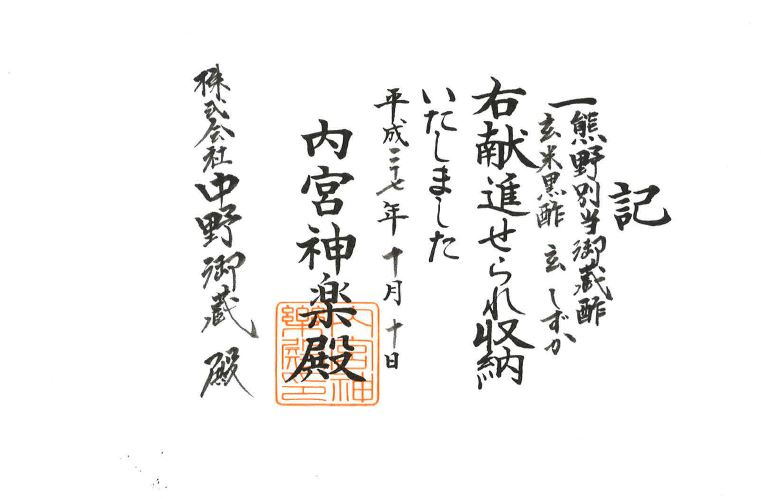 記
一熊野別当御蔵酢
玄米黒酢 玄 しずか
右献進せられ収納
いたしました
平成二十七年十月十日
内宮神楽殿
内宮神
楽殿之印
株式会社中野御蔵殿